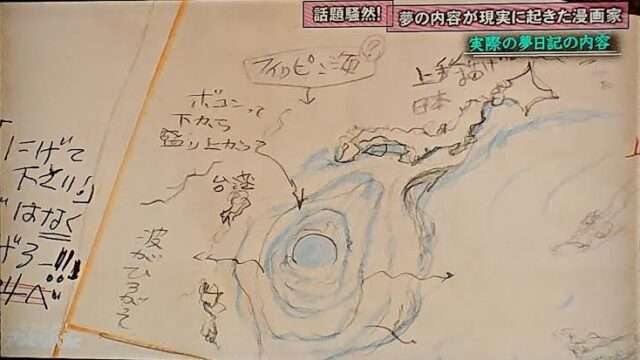 話題騒然!
夢の内容が現実に起きた漫画家
実際の夢日記の内容
フィリピン海
?
ボコンって
下から
盛り上がって
日本
台湾
波がひろがる
にげて
下さい!
ではなく
げろー!!!